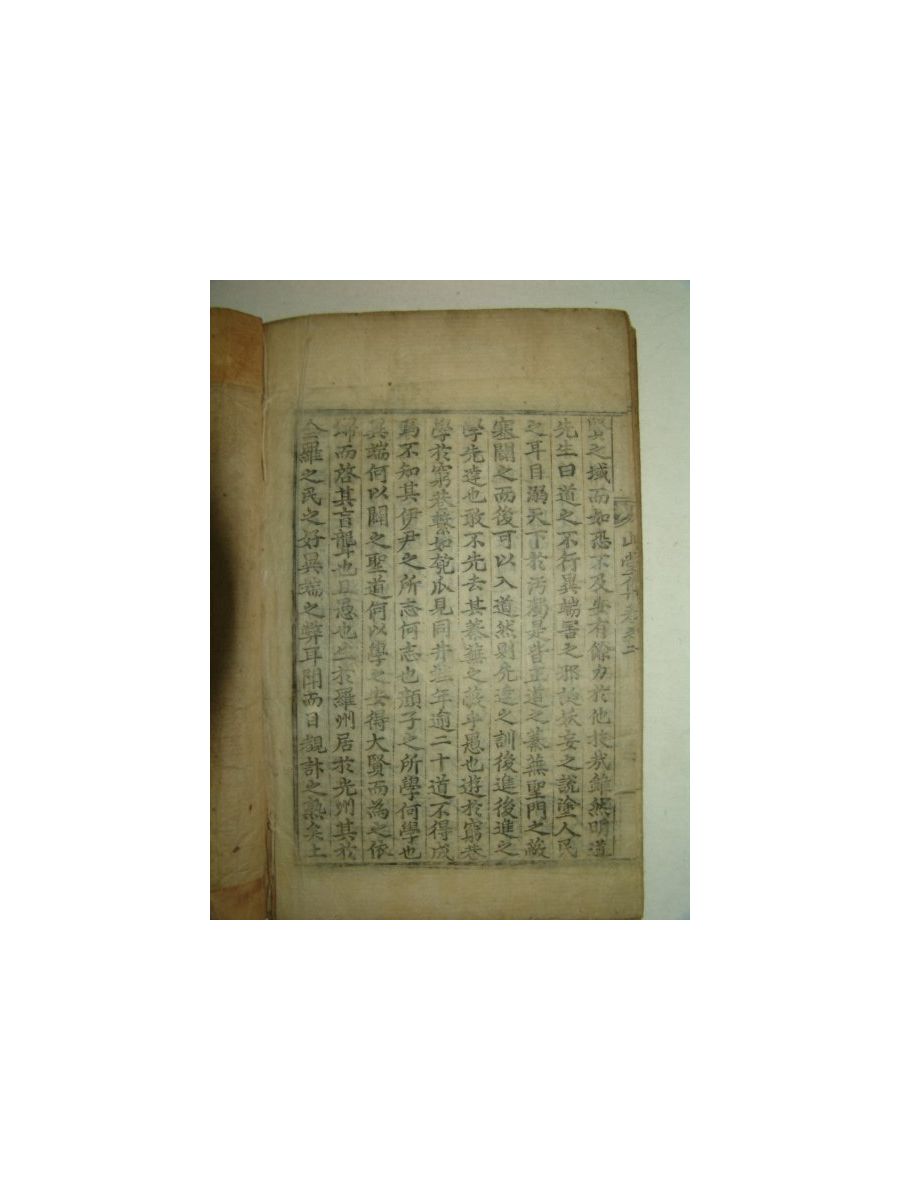 賢之域而如恐不及安有餘力於他技哉雖然明道
先生曰道之不行異端害之邪誕妖妄之說塗人民
之耳目溺天下於汚濁是皆正道之蓁蕪聖門之蔽
塞闢之而後可以入道然則先達之訓後進後進之
學先達也敢不先去其蓁蕪之蔽乎愚也遊於窮巷
學於窮巷繫如匏瓜見同井蛙年逾二十道不得成
焉不知其伊尹之所志何志也顔子之所學何學也
異端何以闢之聖道何以學之安得大賢而為之依
歸而啓其盲聾也且愚也生於羅州居於光州其於
全羅之民之好異端之弊耳聞而目覩訃之熟矣上
山堂集卷之二